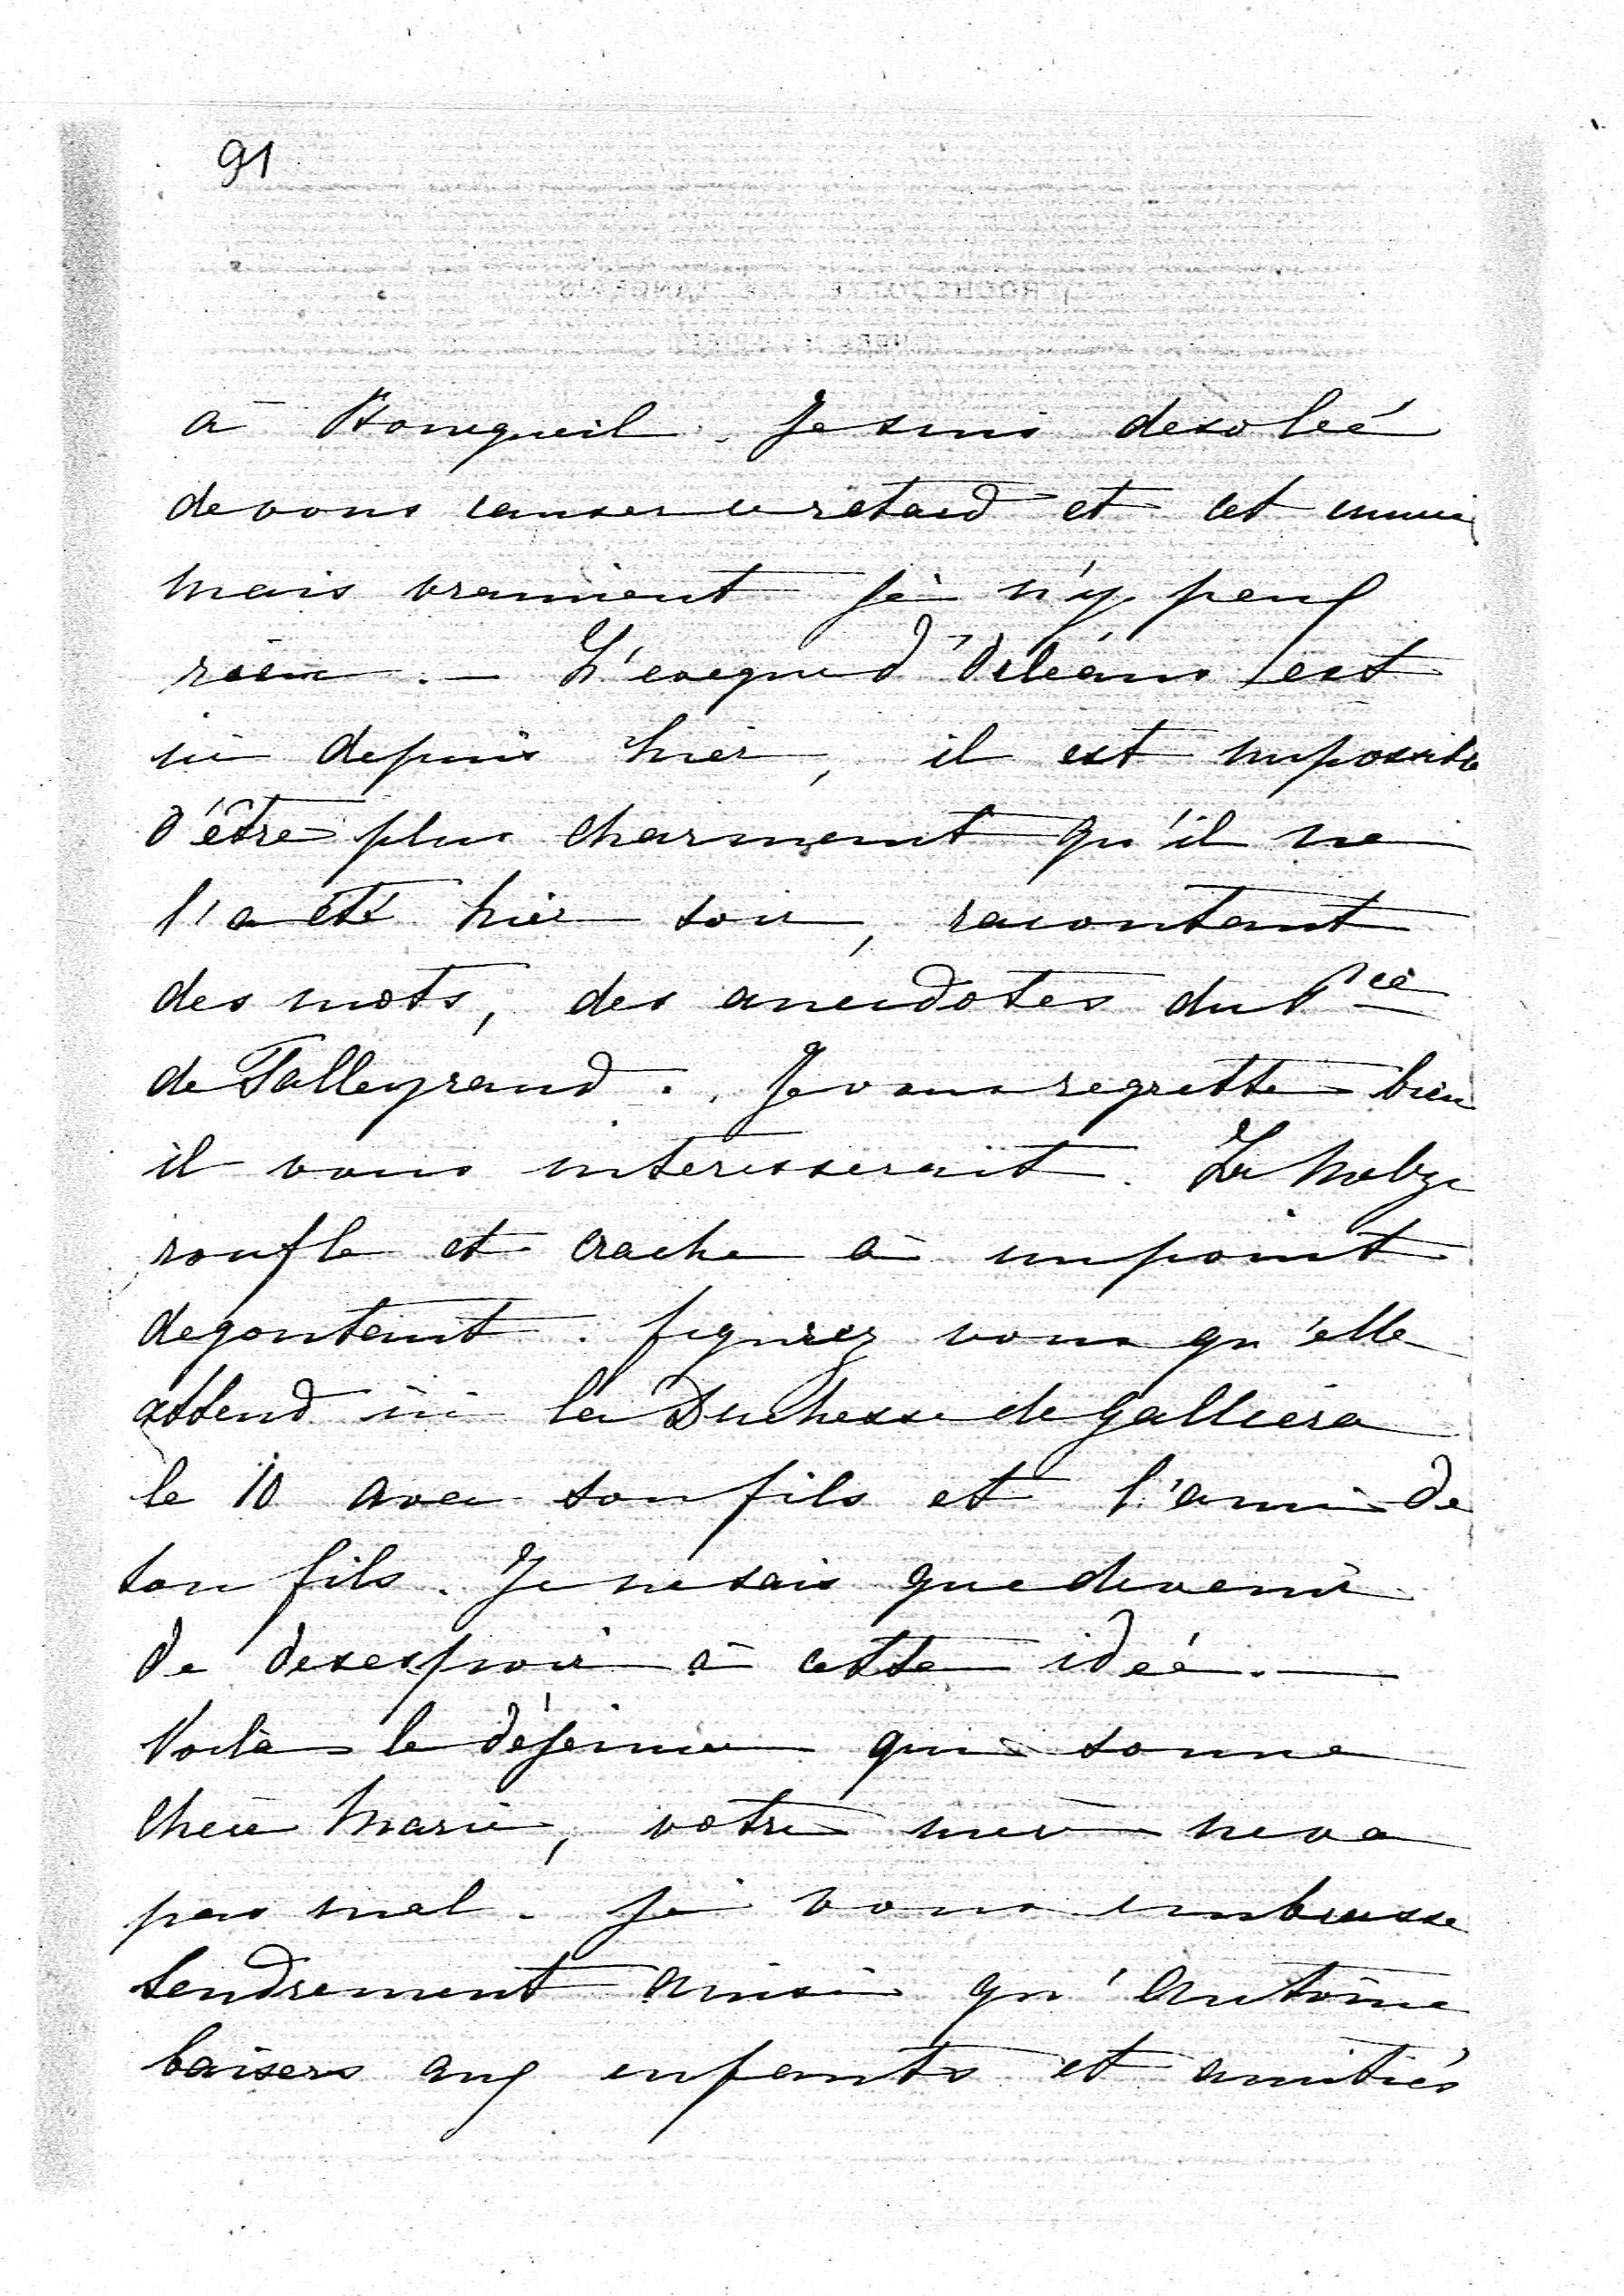 91
à Bourgueil. Je suis desoleé
de vous causer ce retard et cet ennui
mais vraiment je n'y peux
rien. — L'eveque d'Orléans est
ici depuis hier, il est impossible
d'être plus charmant qu'il ne
l'a été hier soir, racontant
des mots, des anecdotes du Pce
de Talleyrand. Je vous regrette bien
il vous interesserait. La
ronfle et crache à un point
degoutant. figurez vous qu'elle
attend ici la Duchesse de Galliera
le 10 avec son fils et l'ami de
son fils. Je ne sais que devenir
de desespoir à cette ideé. —
Voilà le déjeuner qui sonne
chere Marie, votre mere ne va
pas mal. Je vous embrasse
tendrement ainsi qu'Antoine
baisers aux enfants et amitiés